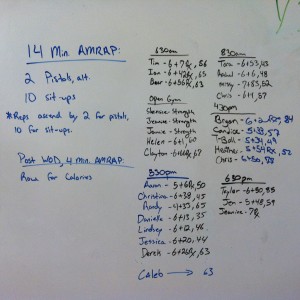 14 Min. AMRAP:
2 Pistols, alt.
10 sit-ups
*Reps ascend by 2 for pistols,
10 for sit-ups.
Post WOD, 4 min. AMRAP:
Row for Calories
630am
Tim - 6+7Rx, 56
Ian - 6+42Rx, 65
Bear - 6+56Rx, 63
Open Gym
Jeannie - Strength
Jamie - Strength
Helen - 6+1, 67
Clayton - 6+ 67
530pm
Aaron - 5+6Rx, 50
Christina - 6+38, 45
Randy - 4+33, 65
Daniella - 6+13, 35
Lindsey - 6+12, 46
Jessica - 6+20, 44
Derek - 6+26Rx, 63
Caleb → 63
830am
Tara - 6+53, 43
6+6, 48
Missy - 7+53, 52
Chris - 6+1, 57
430pm
Bryan - 6+2
Candice - 5+33, 57
T-Bell - 5+31, 49
Heather - 5+54Rx, 52
Chris - 6+50, 88
630pm
Taylor - 6+50, 55
Jen - 5+48, 59
Jeanine - 7Rx